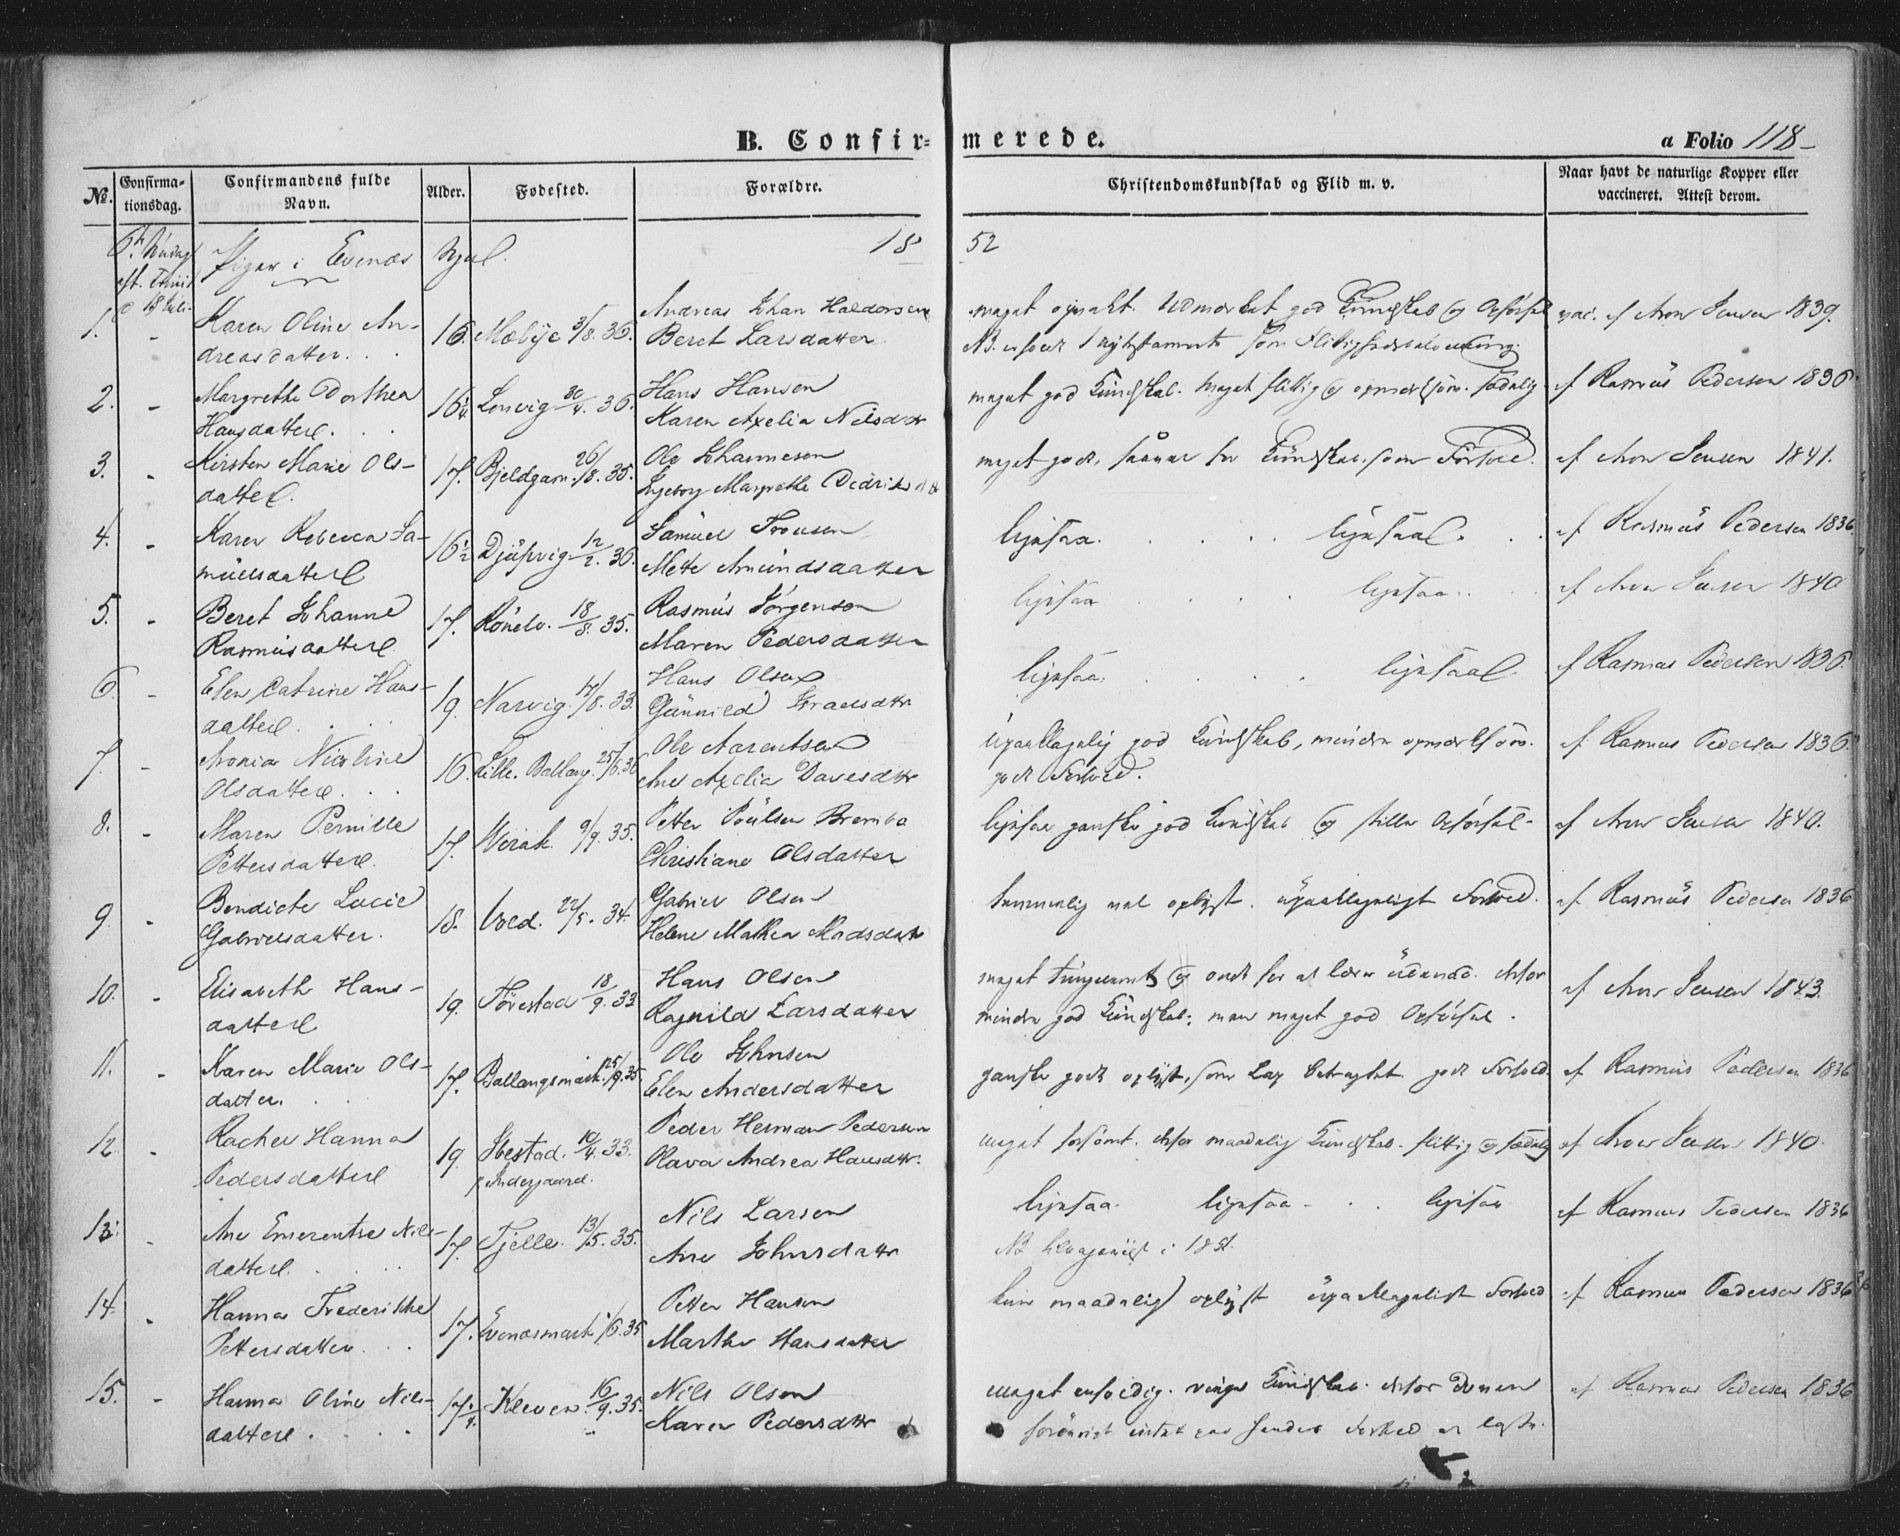 B. Confir=
merede.
a Folio 118
No.
Confirma-
tionsdag.
Confirmandens fulde
Navn.
Alder.
Fødested.
Forældre.
Christendomskundskab og Flid m. v.
Naar havt de naturlige Kopper eller
vaccineret. Attest derom.
Piger i Evenæs
18 52
1. Karen Oline An- 16. 3/8. 36. Andreas Johan Haldorsen meget opvakt. Udmærket god Kundskab og Opførsel vac. af Aron Jensen 1839.
dreasdatter. Beret Larsdatter
2. Margrethe Dorthea 16 1/4 Lenvig 30/4. 36. Hans Hansen meget god Kundskab. meget flittig og opmærksom. sædelig af Rasmus Pedersen 1836.
Hansdatter. Karen Axelia Nilsdttr
3. Kirsten Marie Ols- 17. Bjeldgam. 26/8. 35. Ole Johannesen meget godt, saavel for Kundskab som Forhold. af Aron Jensen 1841.
datter. Ingeborg Margrethe Didriksdttr
4. Karen Rebecca Sa- 16 1/2 Djupvig 12/2. 36. Samuel Tronsen ligesaa. ligesaa. af Rasmus Pedersen 1836.
muelsdatter Mette Amundsdatter
5. Beret Johanne 17. 18/8. 35. Rasmus Jørgensen ligesaa ligesaa. af Aron Jensen 1840
Rasmusdatter Maren Pedersdatter
6. Elen Catrine Hans- 19. Narvig. 33. Hans Olsen ligesaa. ligesaa. af Rasmus Pedersen 1836.
datter. Gunnild Israelsdttr
7. Aronia Nicoline 16. Lille Ballang. 25/6. 36 Ole Arentsen upaaklagelig god Kundskab, mindre opmærksom. af Rasmus Pedersen 1836.
Olsdatter. Ane Axelia Davesdttr godt Forhold.
8. Maren Pernille 17. Virak 9/9. 35. Petter Poulsen Bremba ligesaa ganske god Kundskab og stille Opførsel. af Aron Jensen 1840.
Pettersdatter. Christiane Olsdatter
9. Bendicte Lucie 18. Vold. 22/5. 34. Gabriel Olsen temmelig vel oplyst. upaaklageligt Forhold. af Rasmus Pedersen 1836
Gabrielsdatter. Helene Mathea Madsdttr
10. Elisabeth Hans- 19. Forestad 18/9. 33 Hans Olsen meget tungnemt og ondt for at lære udenad. derfor af Aron Jensen 1843.
datter Ragnild Larsdatter mindre god Kundskab; men meget god Opførsel.
11. Karen Marie Ols- 17. Ballangsmark. 35 Ole Johnsen ganske godt oplyst, som Lap betragtet. godt Forhold. af Rasmus Pedersen 1836
datter. Elen Andersdatter
12. Rachel Hanna 19. Ibestad. 10/4. 33. Peder Herman Pedersen meget forsømt. derfor maadelig Kundskab. flittig og sædelig af Aron Jensen 1840.
Pedersdatter Olava Andrea Hansdttr.
13. Ane Emerentse Nils- 17. Tjelle. 13/5. 35. Nils Larsen ligesaa. ligesaa. ligesaa af Rasmus Pedersen 1836
datter. Ane Johnsdattr NB. i 1851.
14. Hanna Frederikke 17. Evenæsmark 1/6. 35 Petter Hansen kun maadeligt oplyst upaaklageligt Forhold af Rasmus Pedersen 1836
Pettersdatter. Marthe Hansdatter
15. Hanna Oline Nils- Kleven. 16/9. 35. Nils Olsen meget enfoldig. ringe Kundskab. af Rasmus Pedersen 1836
datter. Karen Pedersdttr